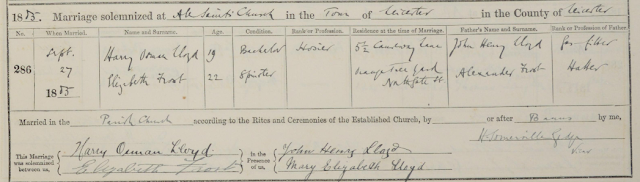 1885. Marriage solemnized at All Saints Church in the Town of Leicester in the County of Leicester
No. When Married. Name and Surname. Age. Condition. Rank or Profession. Residence at the time of Marriage. Father's Name and Surname. Rank or Profession of Father.
286 Sept. 27 1885 Harry Osman Lloyd 19 Bachelor Hosier 52 Causeway Lane John Henry Lloyd
Elizabeth Frost 22 Spinster Yard Northgate St Alexander Frost
Married in the Parish Church according to the Rites and Ceremonies of the Established Church, by or after Banns by me,
This Marriage was solemnized between us, Harry Osman Lloyd Elizabeth Frost In the Presence of us, John Henry Lloyd Mary Elizabeth Lloyd